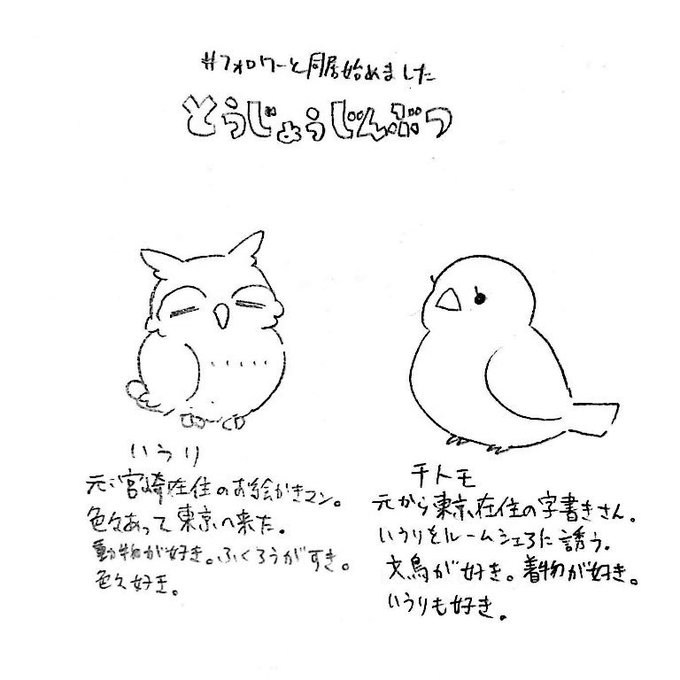 #フォロワーと同居始めました
とうじょうじんぶつ
いうり
元・宮崎在住のお絵かきマン。
色々あって東京へ来た。
動物が好き。ふくろうがすき。
色々好き。
千トモ
元から東京在住の字書きさん。
いうりをルームシェアに誘う。
文鳥が好き。着物が好き。
いうりも好き。